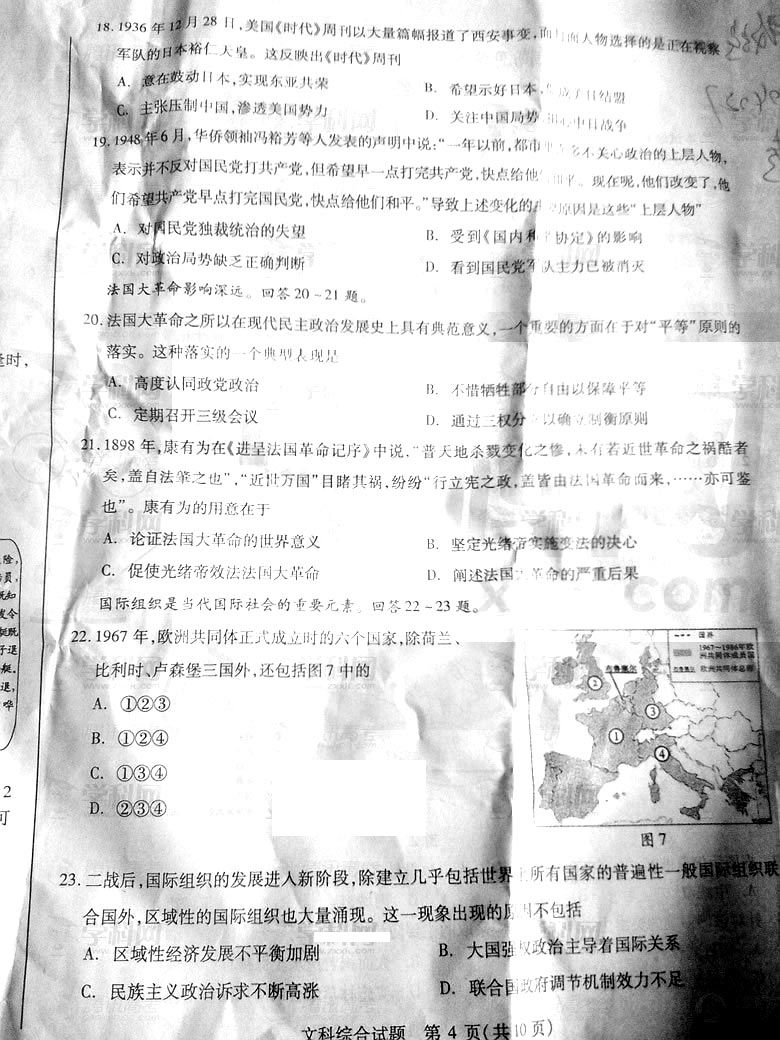 18. 1936 年 12 月 28 日,美国《时代》周刊以大量篇幅报道了西安事变,而封面人物选择的是正在视察
军队的日本裕仁天皇。这反映出《时代》周刊
A. 意在鼓动日本,实现东亚共荣 B. 希望示好日本,
C. 主张压制中国,渗透美国势力 D. 关注中国局势 中日战争
19. 1948 年 6 月,华侨领袖冯裕芳等人发表的声明中说:“一年以前,都市 多不关心政治的上层人物,
表示并不反对国民党打共产党,但希望早一点打完共产党,快点给他 和平。现在呢,他们改变了,他
们希望共产党早点打完国民党,快点给他们和平。”导致上述变化的 原因是这些“上层人物”
A. 对国民党独裁统治的失望 B. 受到《国内和平协定》的影响
C. 对政治局势缺乏正确判断 D. 看到国民党军队主力已被消灭
法国大革命影响深远。回答 20～21 题。
20. 法国大革命之所以在现代民主政治发展史上具有典范意义,一个重要的方面在于对“平等”原则的
落实。这种落实的一个典型表现是
A. 高度认同政党政治 B. 不惜牺牲部分自由以保障平等
C. 定期召开三级会议 D. 通过三权分 以确立制衡原则
21. 1898 年,康有为在《进呈法国革命记序》中说,“普天地杀戮变化之惨,未有若近世革命之祸酷者
矣,盖自法肇之也”,“近世万国”目睹其祸,纷纷“行立宪之政,盖皆由法国革命而来,……亦可鉴
也”。康有为的用意在于
A. 论证法国大革命的世界意义 B. 坚定光绪帝实施变法的决心
C. 促使光绪帝效法法国大革命 D. 阐述法国大革命的严重后果
国际组织是当代国际社会的重要元素。回答 22～23 题。
22. 1967 年,欧洲共同体正式成立时的六个国家,除荷兰、
比利时、卢森堡三国外,还包括图 7 中的
A. ①②③
B. ①②④
C. ①③④
D. ②③④
国界
1967～1986年欧
洲共同体成员国
布鲁塞尔 欧洲共同体总部
布鲁塞尔
②
③
①
④
图 7
23. 二战后,国际组织的发展进入新阶段,除建立几乎包括世界上所有国家的普遍性一般国际组织联
合国外,区域性的国际组织也大量涌现。这一现象出现的原因不包括
A. 区域性经济发展不平衡加剧 B. 大国强权政治主导着国际关系
C. 民族主义政治诉求不断高涨 D. 联合国政府调节机制效力不足
文科综合试题 第 4 页(共 10 页)